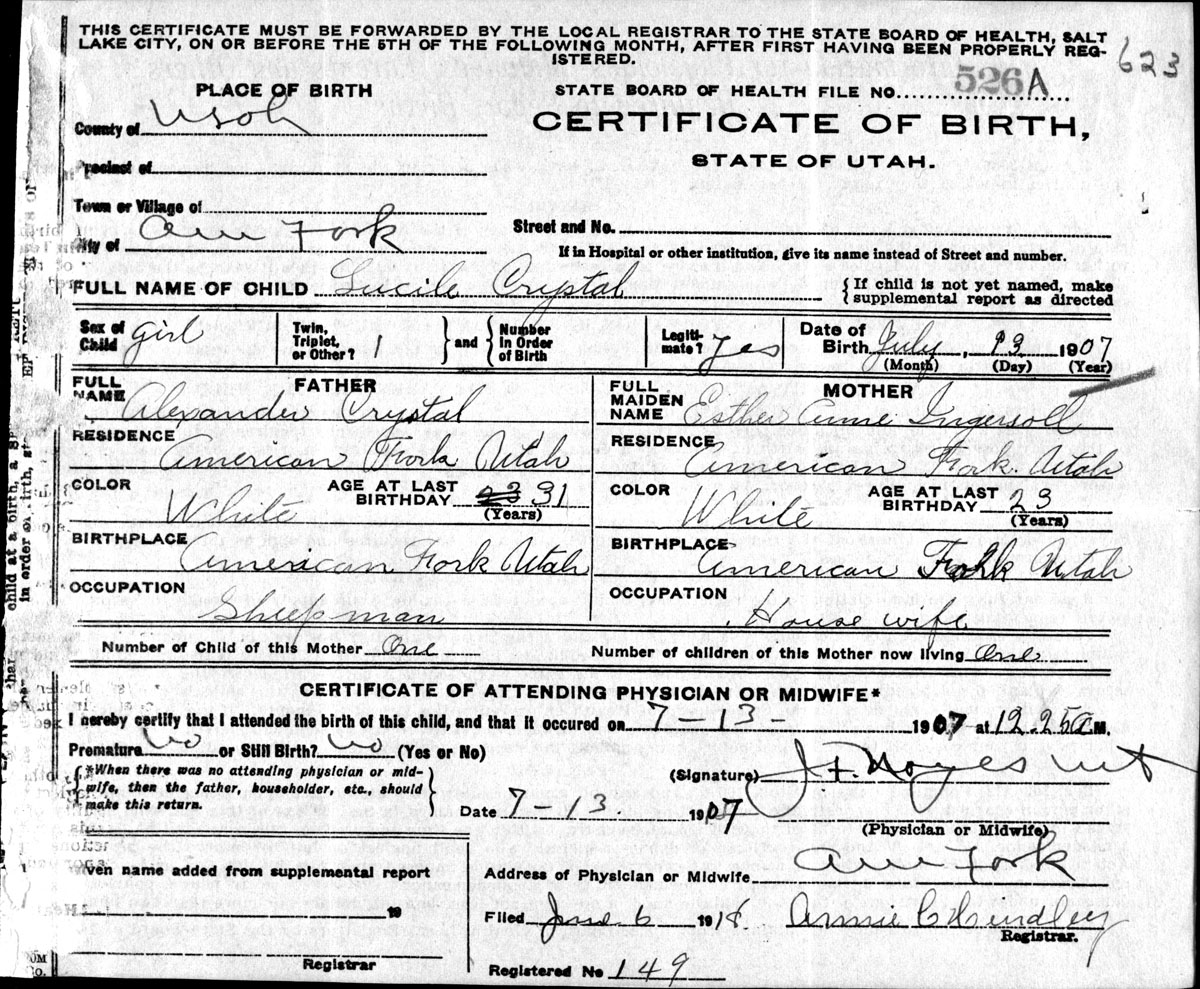 THIS CERTIFICATE MUST BE FORWARDED BY THE LOCAL REGISTRAR TO THE STATE BOARD OF HEALTH, SALT
LAKE CITY, ON OR BEFORE THE 5TH OF THE FOLLOWING MONTH, AFTER FIRST HAVING BEEN PROPERLY REG-
ISTERED.
623
PLACE OF BIRTH
STATE BOARD OF HEALTH FILE NO. 526A
County of
CERTIFICATE OF BIRTH,
STATE OF UTAH.
Precinct of
Town or Village of
Street and No.
City of Am Fork
If in Hospital or other institution, give its name instead of Street and number.
FULL NAME OF CHILD Lucile Crystal
If child is not yet named, make
supplemental report as directed
Sex of Child girl Twin, Triplet, or Other? 1 and Number in Order of Birth Legiti-mate? yes Date of Birth July, 13 1907
(Month) (Day) (Year)
FATHER
MOTHER
FULL NAME Alexander Crystal
FULL MAIDEN NAME Esther Anne Ingersoll
RESIDENCE American Fork Utah
RESIDENCE American Fork. Utah
COLOR White AGE AT LAST BIRTHDAY 31 (Years)
COLOR White AGE AT LAST BIRTHDAY 23 (Years)
BIRTHPLACE American Fork Utah
BIRTHPLACE American Fork Utah
OCCUPATION Sheepman
OCCUPATION House wife
Number of Child of this Mother One
Number of children of this Mother now living One
CERTIFICATE OF ATTENDING PHYSICIAN OR MIDWIFE*
I hereby certify that I attended the birth of this child, and that it occured on 7-13- 1907 at 12.25 a M.
Premature No or Still Birth? No (Yes or No)
*When there was no attending physician or mid-
wife, then the father, householder, etc., should
make this return.
(Signature) J F Noyes
Date 7-13. 1907
(Physician or Midwife)
Given name added from supplemental report
Address of Physician or Midwife Am Fork
19
Filed June 6 1918 Annie C Hindley
Registrar.
Registrar
Registered No 149